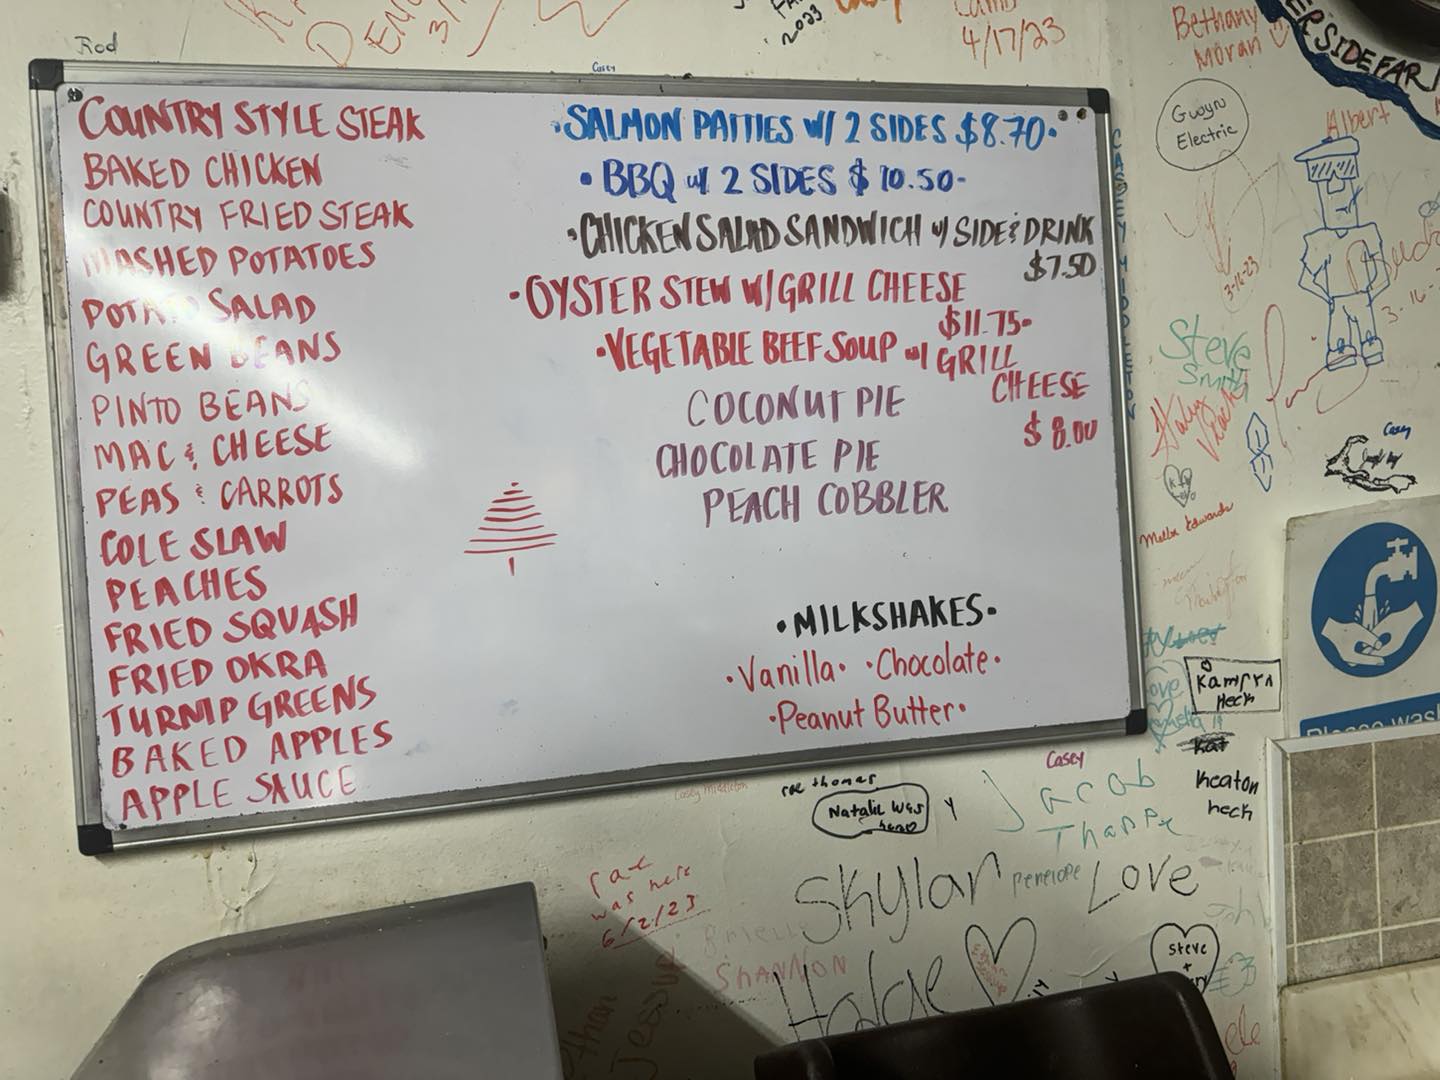 Rod
Casey
2023
4/17/23
Bethany
Moran
COUNTRY STYLE STEAK
BAKED CHICKEN
COUNTRY FRIED STEAK
MASHED POTATOES
POTATO SALAD
GREEN BEANS
PINTO BEANS
MAC & CHEESE
PEAS & CARROTS
COLE SLAW
PEACHES
FRIED SQUASH
FRIED OKRA
TURNIP GREENS
BAKED APPLES
APPLE SAUCE
•SALMON PATTIES W/ 2 SIDES $8.70•
• BBQ W/ 2 SIDES $ 10.50-
•CHICKEN SALAD SANDWICH W/ SIDE & DRINK
$7.50
•OYSTER STEW W/ GRILL CHEESE
$11.75-
•VEGETABLE BEEF SOUP W/ GRILL
CHEESE
$ 8.00
COCONUT PIE
CHOCOLATE PIE
PEACH COBBLER
•MILKSHAKES•
•Vanilla• •Chocolate•
•Peanut Butter•
CASEY MIDDLETON
Gwyn
Electric
Albert
3-16-23
Steve
Smith
Casey
Melba Edwards
Kamryn
Heck
Kat
Keaton
heck
Please wash
Casey
Casey Middleton
rae thomas
Natalie was
here
Jacob
Tharpe
Skylar
Penelope
Love
rae
was here
6/2/23
SHANNON
Steve
+